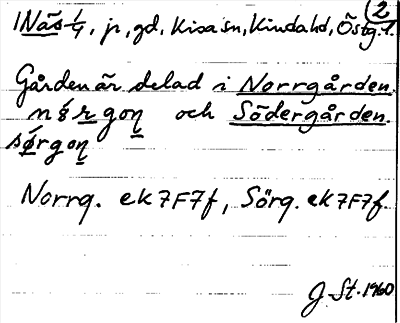 2
1 Näs 1/4, jr, gd, Kisa sn, Kinda hd, Östg. l.
Gården är delad i Norrgården.
och Södergården.
Norrg. ek 7F7f, Sörg. ek 7F7f.
J. St. 1960